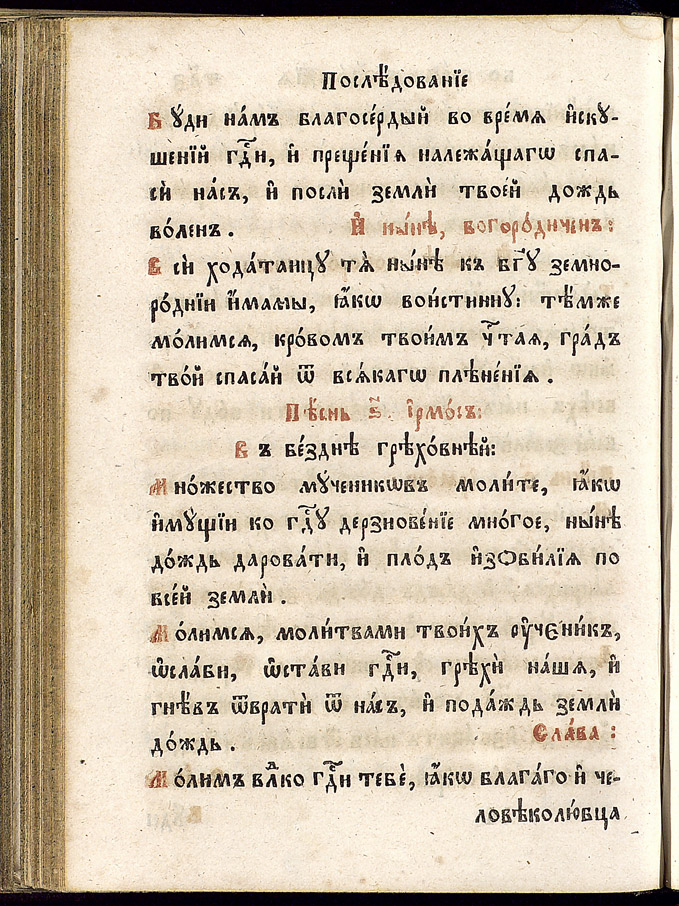 Послѣ́дованїе
Бꙋ́ди на́мъ благосе́рдый во вре́мѧ и҆скꙋ-
ше́нїй гдⷭ҇и, и҆ преще́нїѧ належа́щагѡ спа-
сѝ на́съ, и҆ послѝ землѝ твое́й дождь
во́ленъ. И҆ ны́нѣ, богоро́диченъ:
Всѝ хода́таицꙋ тѧ̀ ны́нѣ къ бг҃ꙋ земно-
ро́днїи и҆́мамы, ꙗ҆́кѡ вои́стиннꙋ: тѣ́мже
мо́лимсѧ, кро́вомъ твои́мъ чⷭ҇таѧ, гра́дъ
тво́й спаса́й ѿ всѧ́кагѡ плѣне́нїѧ.
Пѣ́снь ѕ҃. і҆рмо́съ:
Въ бе́зднѣ грѣхо́внѣй:
Мно́жество мꙋ́ченикѡвъ моли́те, ꙗ҆́кѡ
и҆мꙋ́щїи ко гдⷭ҇ꙋ дерзнове́нїе мно́гое, ны́нѣ
до́ждь дарова́ти, и҆ пло́дъ и҆зѻби́лїѧ по
все́й землѝ.
Мо́лимсѧ, моли́твами твои́хъ оу҆чени́къ,
ѡ҆сла́би, ѡ҆ста́ви гдⷭ҇и, грѣхѝ на́шѧ, и҆
гнѣ́въ ѿвратѝ ѿ на́съ, и҆ пода́ждь землѝ
до́ждь. Сла́ва:
Мо́лимъ влⷣко гдⷭ҇и тебѐ, ꙗ҆́кѡ блага́го и҆ че-
ловѣколю́бца